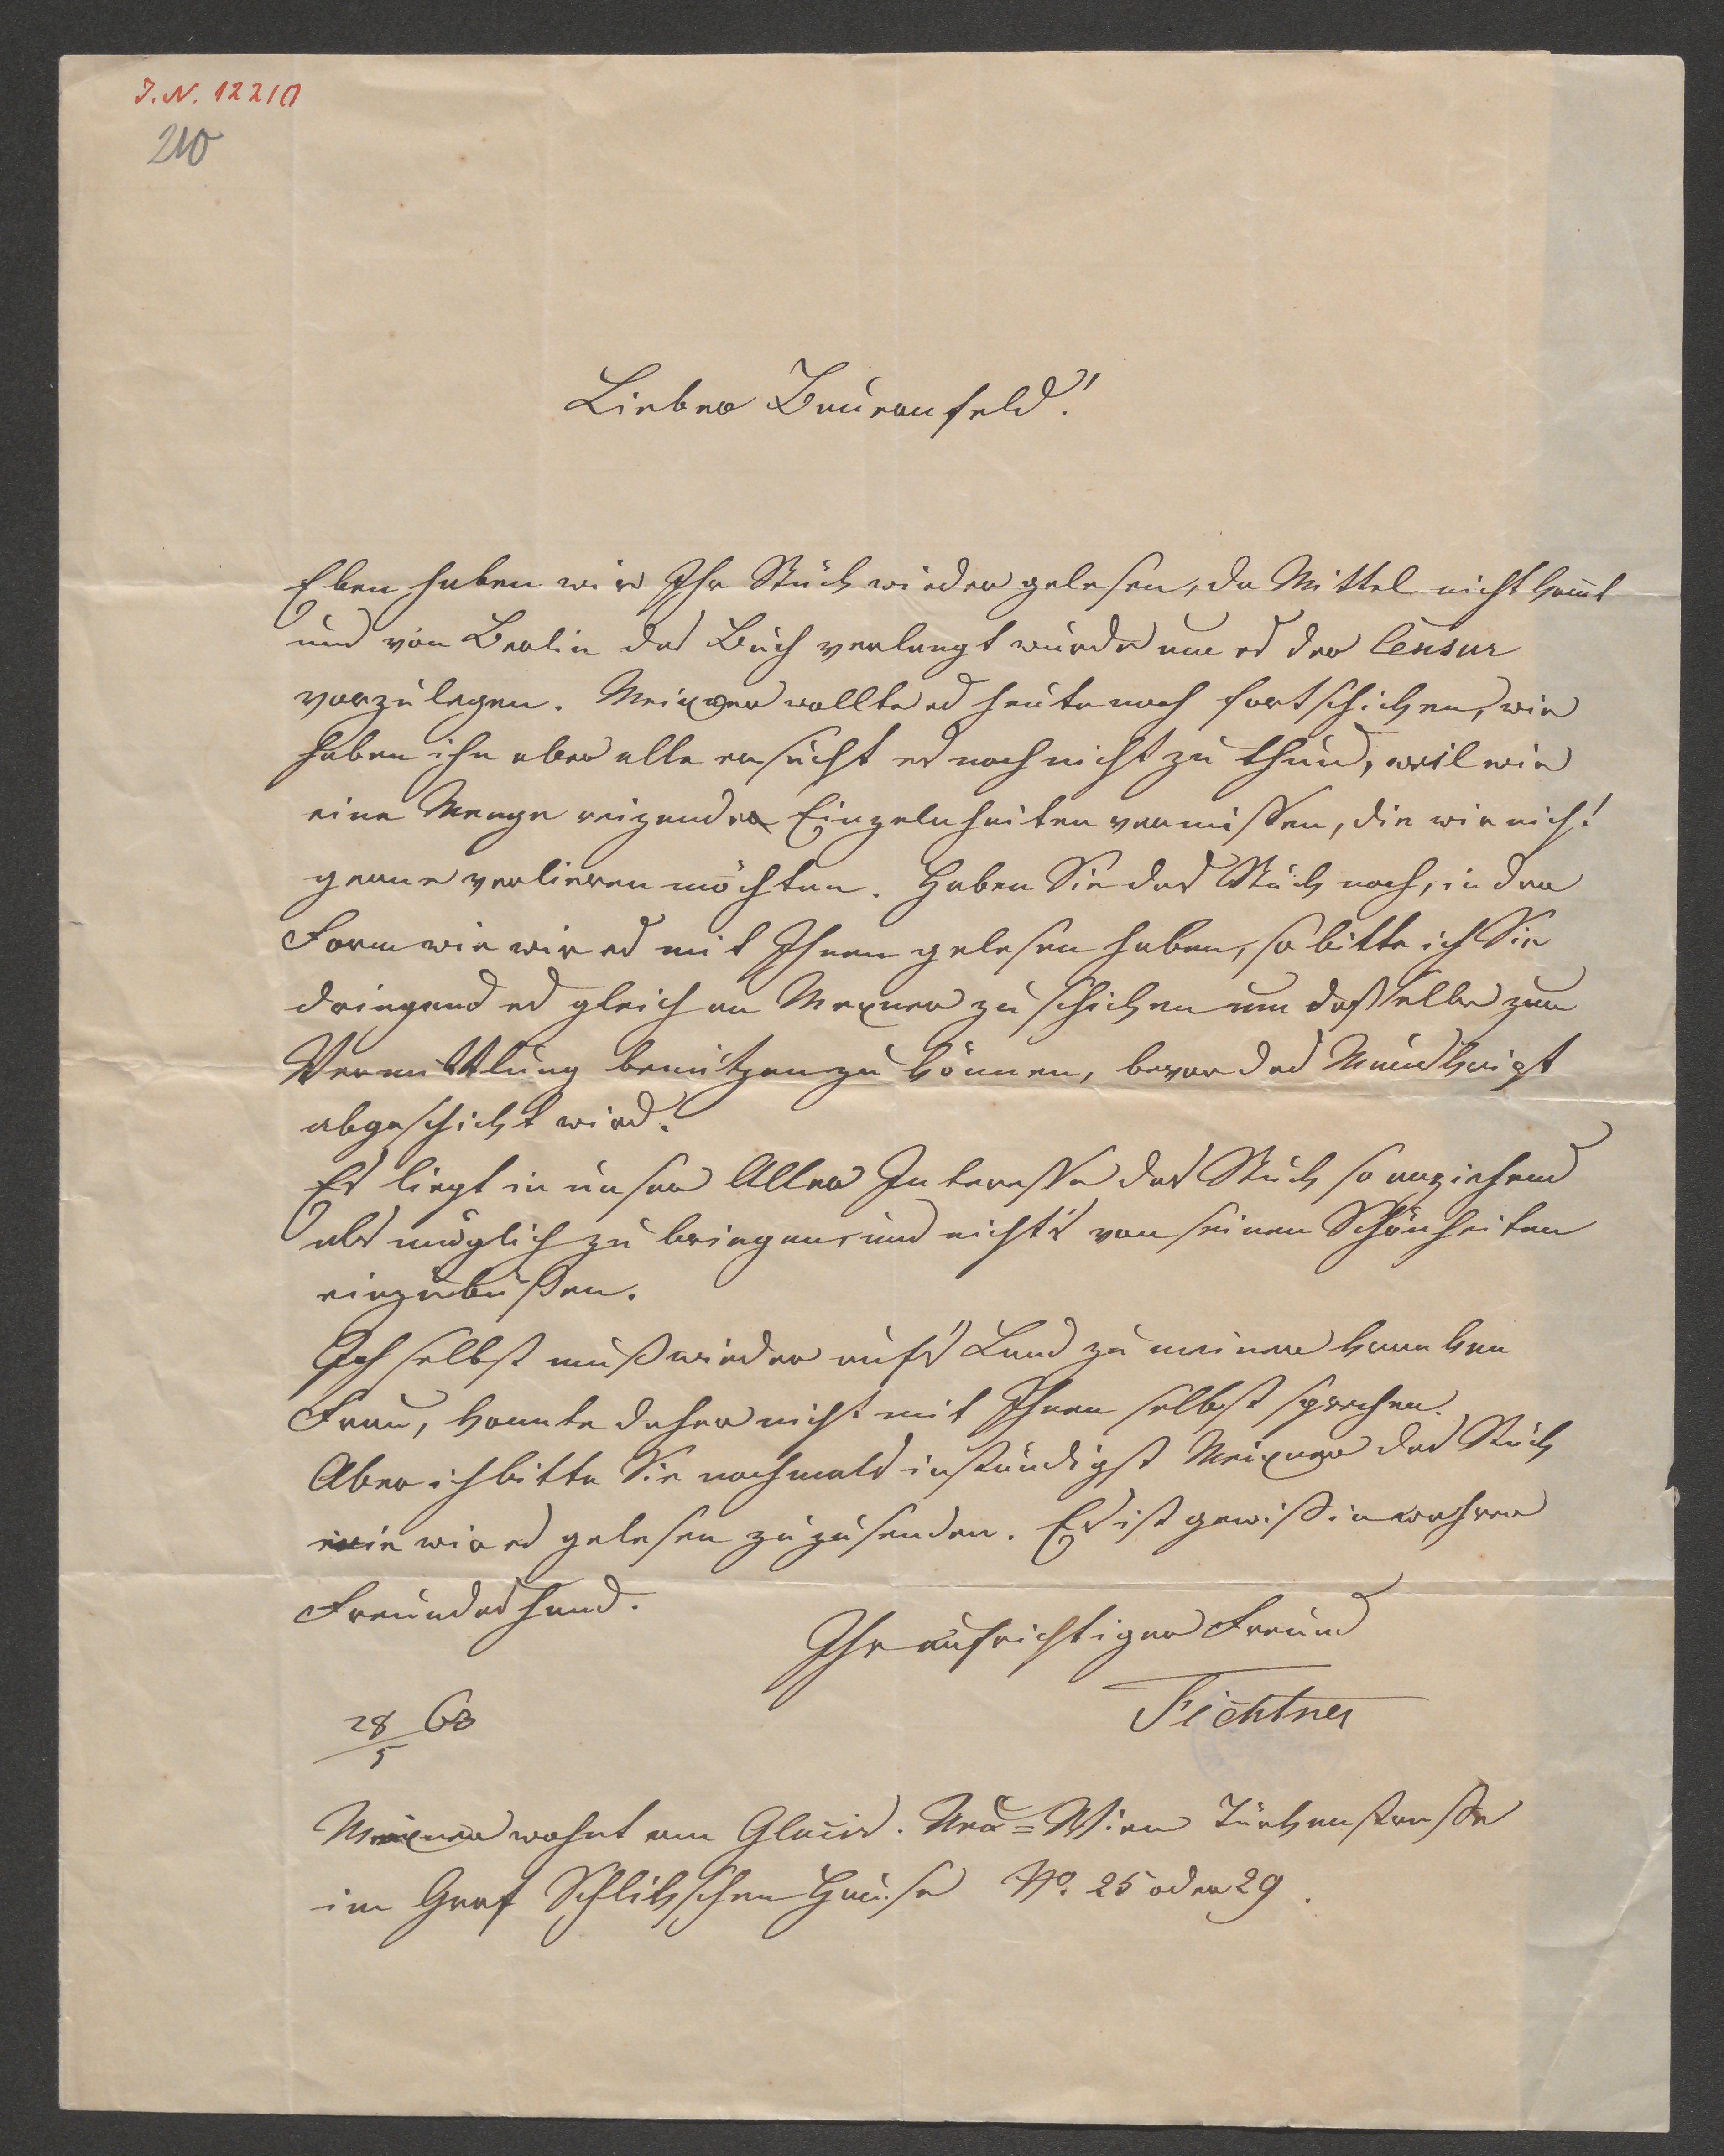 J.N. 12210
210
Lieber Bauernfeld!
Eben haben wir Ihr Stück wieder gelesen, da Mittel nicht kom̅t
und von Berlin das Buch verlangt wurde um es der Censur
vorzulegen. Meixner wollte es heute noch fortschicken, wir
haben ihn aber alle ersucht es noch nicht zu thun, weil wir
eine Menge reizender Einzelnheiten vermissen, die wir nicht
gerne verlieren möchten. Haben Sie das Stück noch, in der
Form wie wir es mit Ihnen gelesen haben, so bitte ich Sie
dringend es gleich an Mexner zu schicken um dasselbe zur
Vermittlung benützen zu können, bevor das
abgeschickt wird.
Es liegt in unser Aller Interesse das Stück so anziehend
als möglich zu bringen, und nichts von seinen Schönheiten
einzubüßen.
Ich selbst muß wieder auf's Land zu meiner kranken
Frau, konnte daher nicht mit Ihnen selbst sprechen.
Aber ich bitte Sie nochmals inständigst Meixner das Stück
wie wir es gelesen zuzusenden. Es ist gewiß in wahrer
Freundeshand.
Ihr aufrichtiger Freund
Fichtner
28/5 60
Meixner wohnt am Glacis. Neu=Wien Türkenstraße
im Graf Schlikschen Hause No. 25 oder 29.